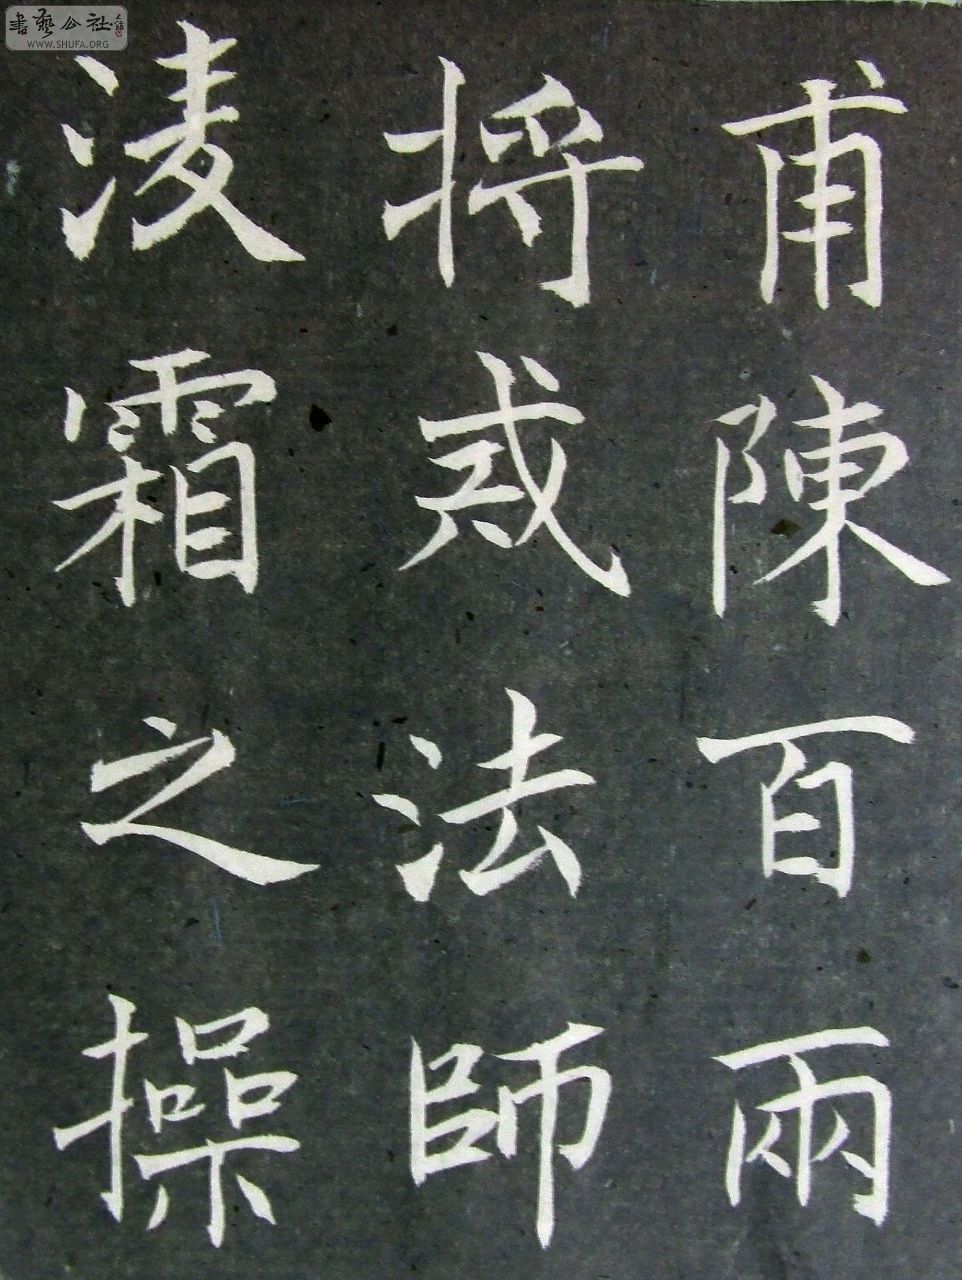 甫陳百兩
將戒法師
淩霜之操
書藝公社
WWW.SHUFA.ORG